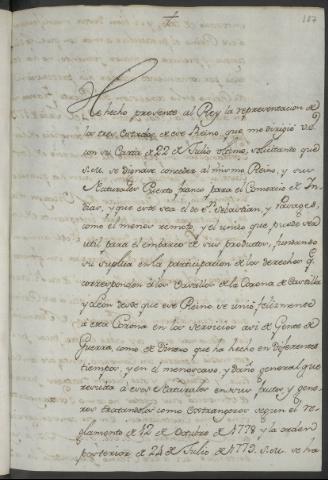 187
He hecho presente al Rey la representacion de
los tres Estados de ese Reino, que me dirigió V.S.
con su Carta de 22 de Julio ultimo, solicitando que
S.M. se dignase conceder al mismo Reino, y sus
Naturales Puerto franco para el Comercio de In-
dias, y que este sea el de Sn. Sebastian, y Pasages,
como el menos remoto, y el unico que puede sea
util para el embarco de sus productos, fundando
su suplica en la participacion de los derechos q.e
corresponden à los Vasallos de la Corona de Castilla
y Leon desde que ese Reino se unió felizmente
á esta Corona en los servicios asi de Gente de
Guerra, como de Dinero que ha hecho en diferentes
tiempos, y en el menoscavo, y daño general que
resulta á esos Naturales en sus frutos, y gene-
ros tratandolos como Extrangeros segun el re-
glamento de 12 de Octubre de 1778 y la orden
posterior de 24 de Julio de 1779. S.M. se ha